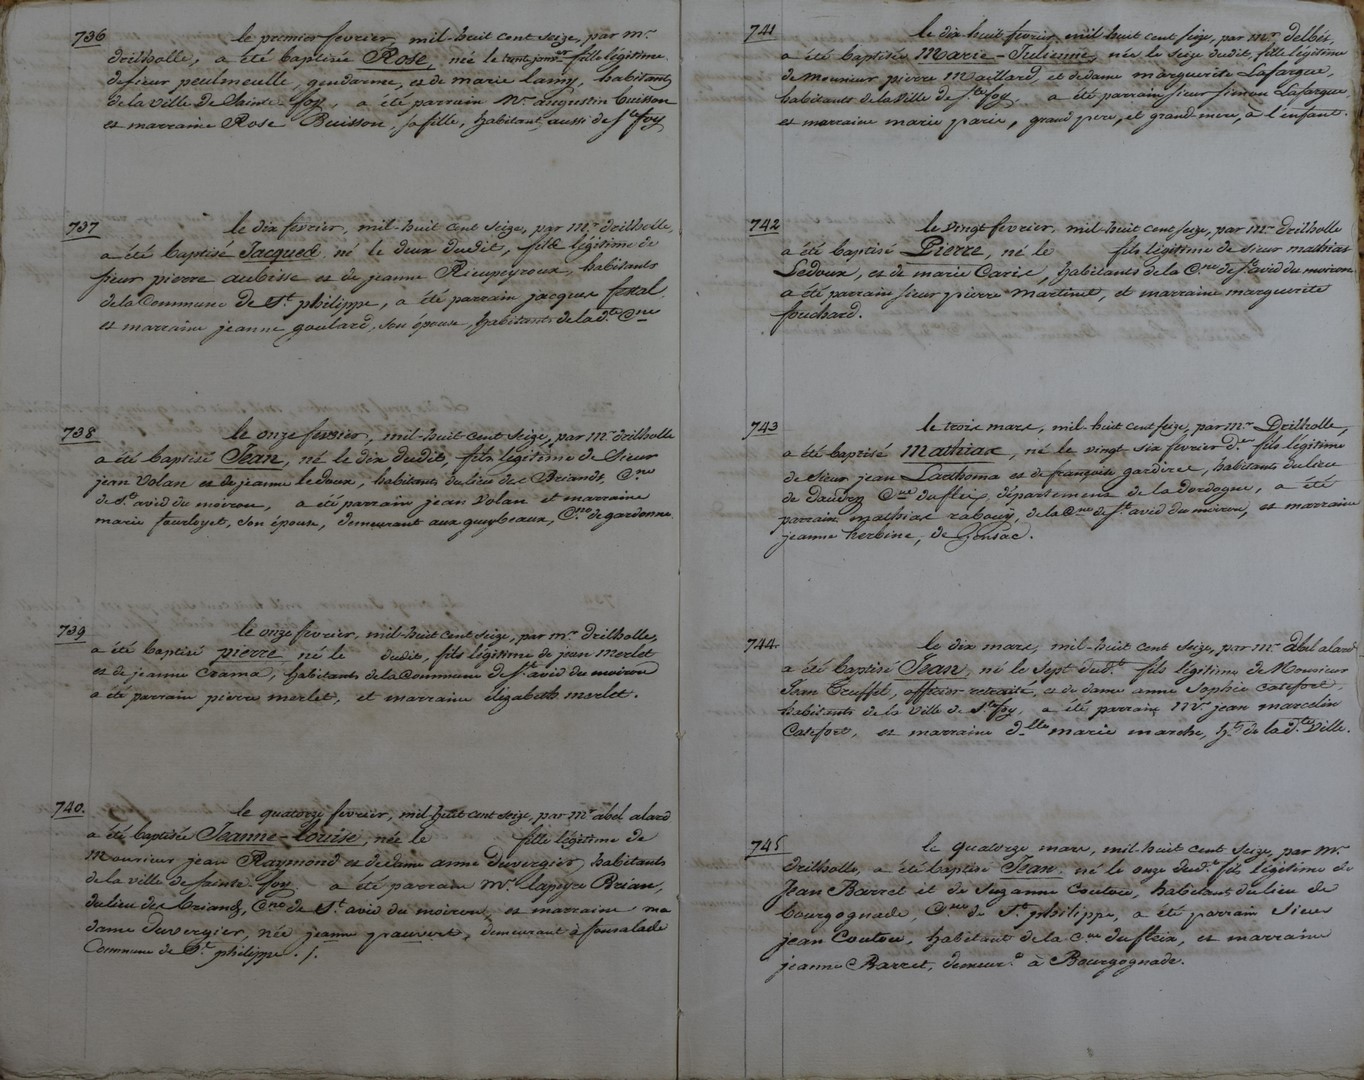 736
le premier fevrier, mil-huit cent seize, par mr.
Drilholle, a été baptisée Rose, née le fille légitime
de sieur peulmeulle, gendarme, et de marie lamy, habitants
de la ville de Sainte foy, a été parrain Mr. augustin buisson
et marraine Rose Buisson, sa fille, habitant aussi de Ste foy
737
le dix fevrier, mil-huit cent seize, par Mr. drilholle,
a été baptisé Jacques, né le deux dudit, fils légitime de
sieur pierre aubisse et de jeanne Rieupeyroux, habitants
de la Commune de St. philippe, a été parrain jacques festal,
et marraine jeanne goulard, son épouse, habitants de la dte. Cne
738
le onze fevrier, mil-huit-cent seize, par Mr. drilholle
a été baptisé Jean, né le dix dudit, fils légitime de Sieur
jean Volan et de jeanne ledoux, habitants du lieu des Briands, Cne
de St. avid du moiron, a été parrain jean Volan et marraine
marie faurloyet, son épouse, demeurant aux guybeaux, Cne de gardonne
739
le onze fevrier, mil-huit cent seize, par mr. Drilholle,
a été baptisé pierre, né le dudit, fils légitime de jean merlet
et de jeanne Crama, habitants de la Commune de St. avid du moiron
a été parrain pierre merlet, et marraine élizabeth merlet.
740.
le quatorze fevrier, mil-huit cent seize, par mr. abel alard
a été baptisée Jeanne-Louise, née le fille légitime de
Monsieur jean Raymond et de dame anne Duvergier, habitants
de la ville de Sainte foy a été parrain Mr. lapoye Brian,
du lieu des briands, Cne de St. avid du moiron, et marraine ma
dame Duvergier, née jeanne pauvert, demeurant à fonsalade
Commune de St. philippe. /.
741
le dix huit fevrier, mil-huit cent seize, par mr. delbès,
a été baptisée Marie-Julienne, née le seize dudit, fille légitime
de Monsieur pierre Maillard, et de dame marguerite Lafargue,
habitants de la ville de Ste foy, a été parrain sieur simon Lafargue,
et marraine marie paris, grand pere, et grand-mere, à l'enfant.
742
le vingt fevrier, mil-huit cent seize, par mr. Drilholle
a été baptisé Pierre, né le fils légitime de sieur mathias
Ledoux, et de marie Carie, habitants de la Cne de St avid du moiron
a été parrain sieur pierre Martinet, et marraine marguerite
fouchard.
743
le trois mars, mil-huit cent seize, par mr. Drilholle,
a été baptisé Mathias, né le vingt six fevrier der. fils légitime
de Sieur jean Lathoma et de françoise gardirce, habitants du lieu
de Daudon Cne du fleix, département de la Dordogne, a été
parrain mathias rabouy, de la Cne de St. avid du moiron, et marraine
jeanne herbine, de Gonsac.
744.
le dix mars, mil-huit cent seize, par mr. Abel alard
a été baptisé Jean, né le sept dudt. fils légitime de Monsieur
Jean Treffel, officier retraité, et de dame anne Sophie Catefort,
habitants de la ville de Ste foy, a été parrain Mr. jean marcelin
Catefort, et marraine dlle marie marche, hts. de la dte. Ville.
745
le quatorze mars, mil-huit cent seize, par Mr.
Drilholle, a été baptisé Jean, né le onze dudt. fils légitime de
Jean Barret et de Suzanne Coutou, habitant du lieu de
bourgognade, Cne de St. philippe, a été parrain Sieur
jean Coutou, habitant de la Cne du fleix, et marraine
jeanne Barret, demeurt. à Bourgognade.